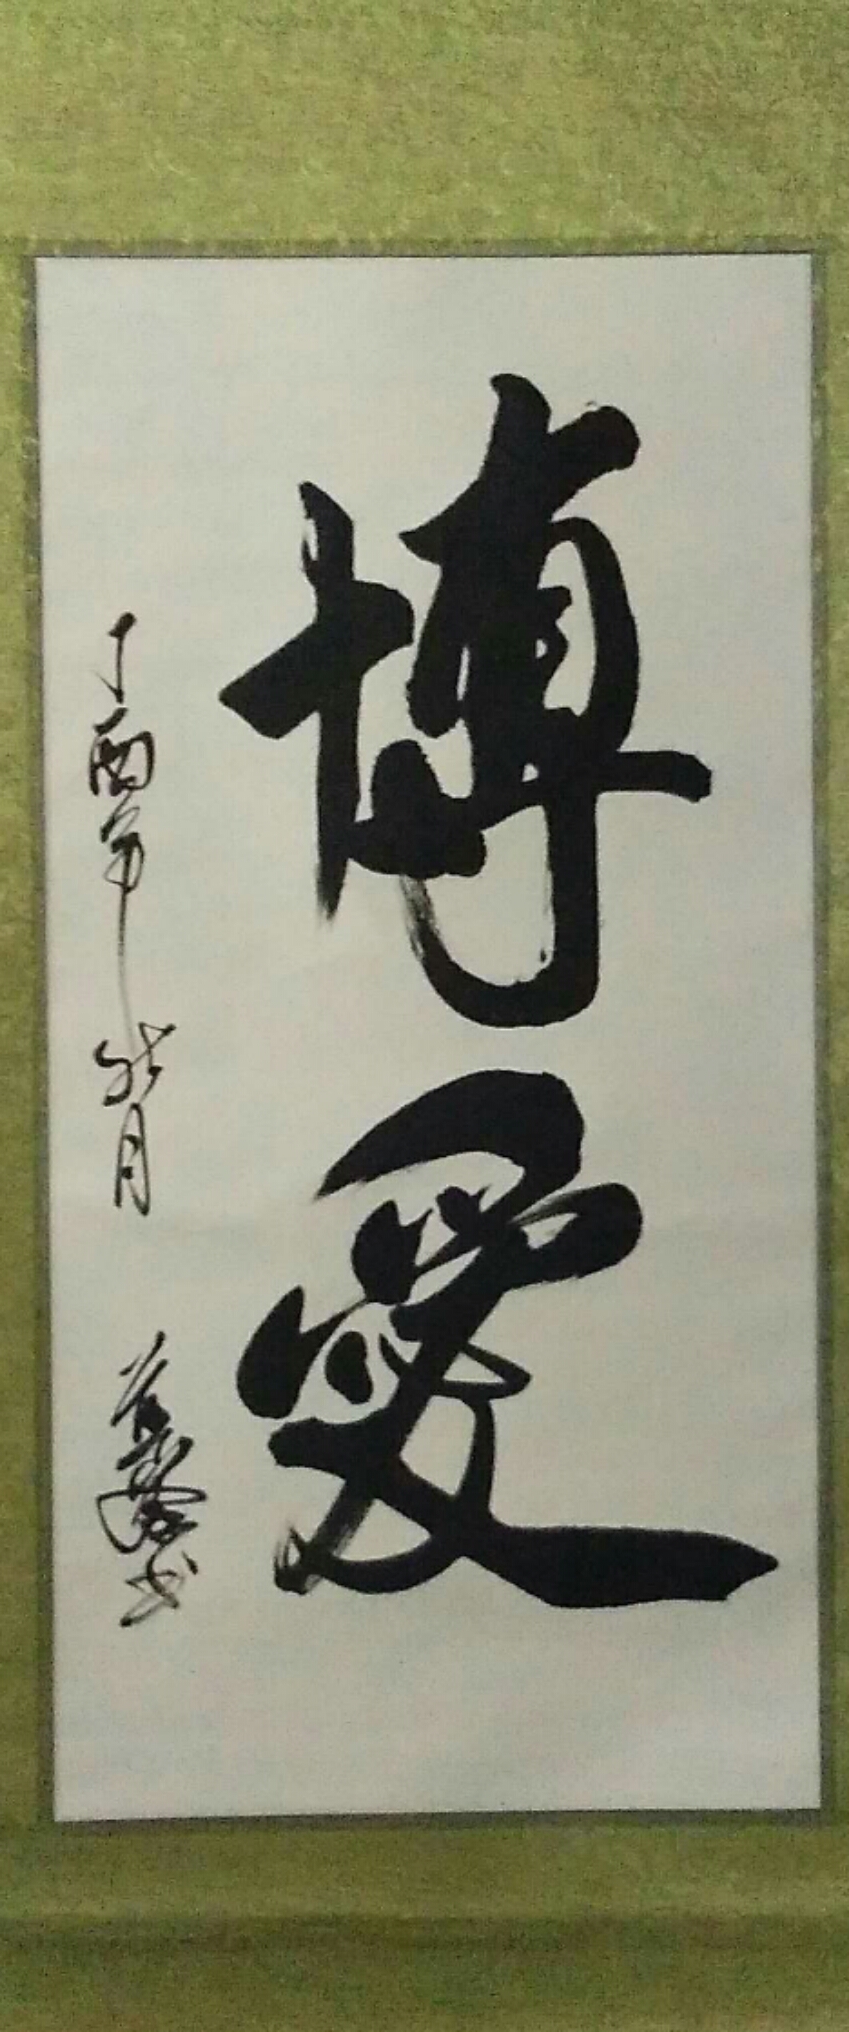 博愛
丁酉年 月
書